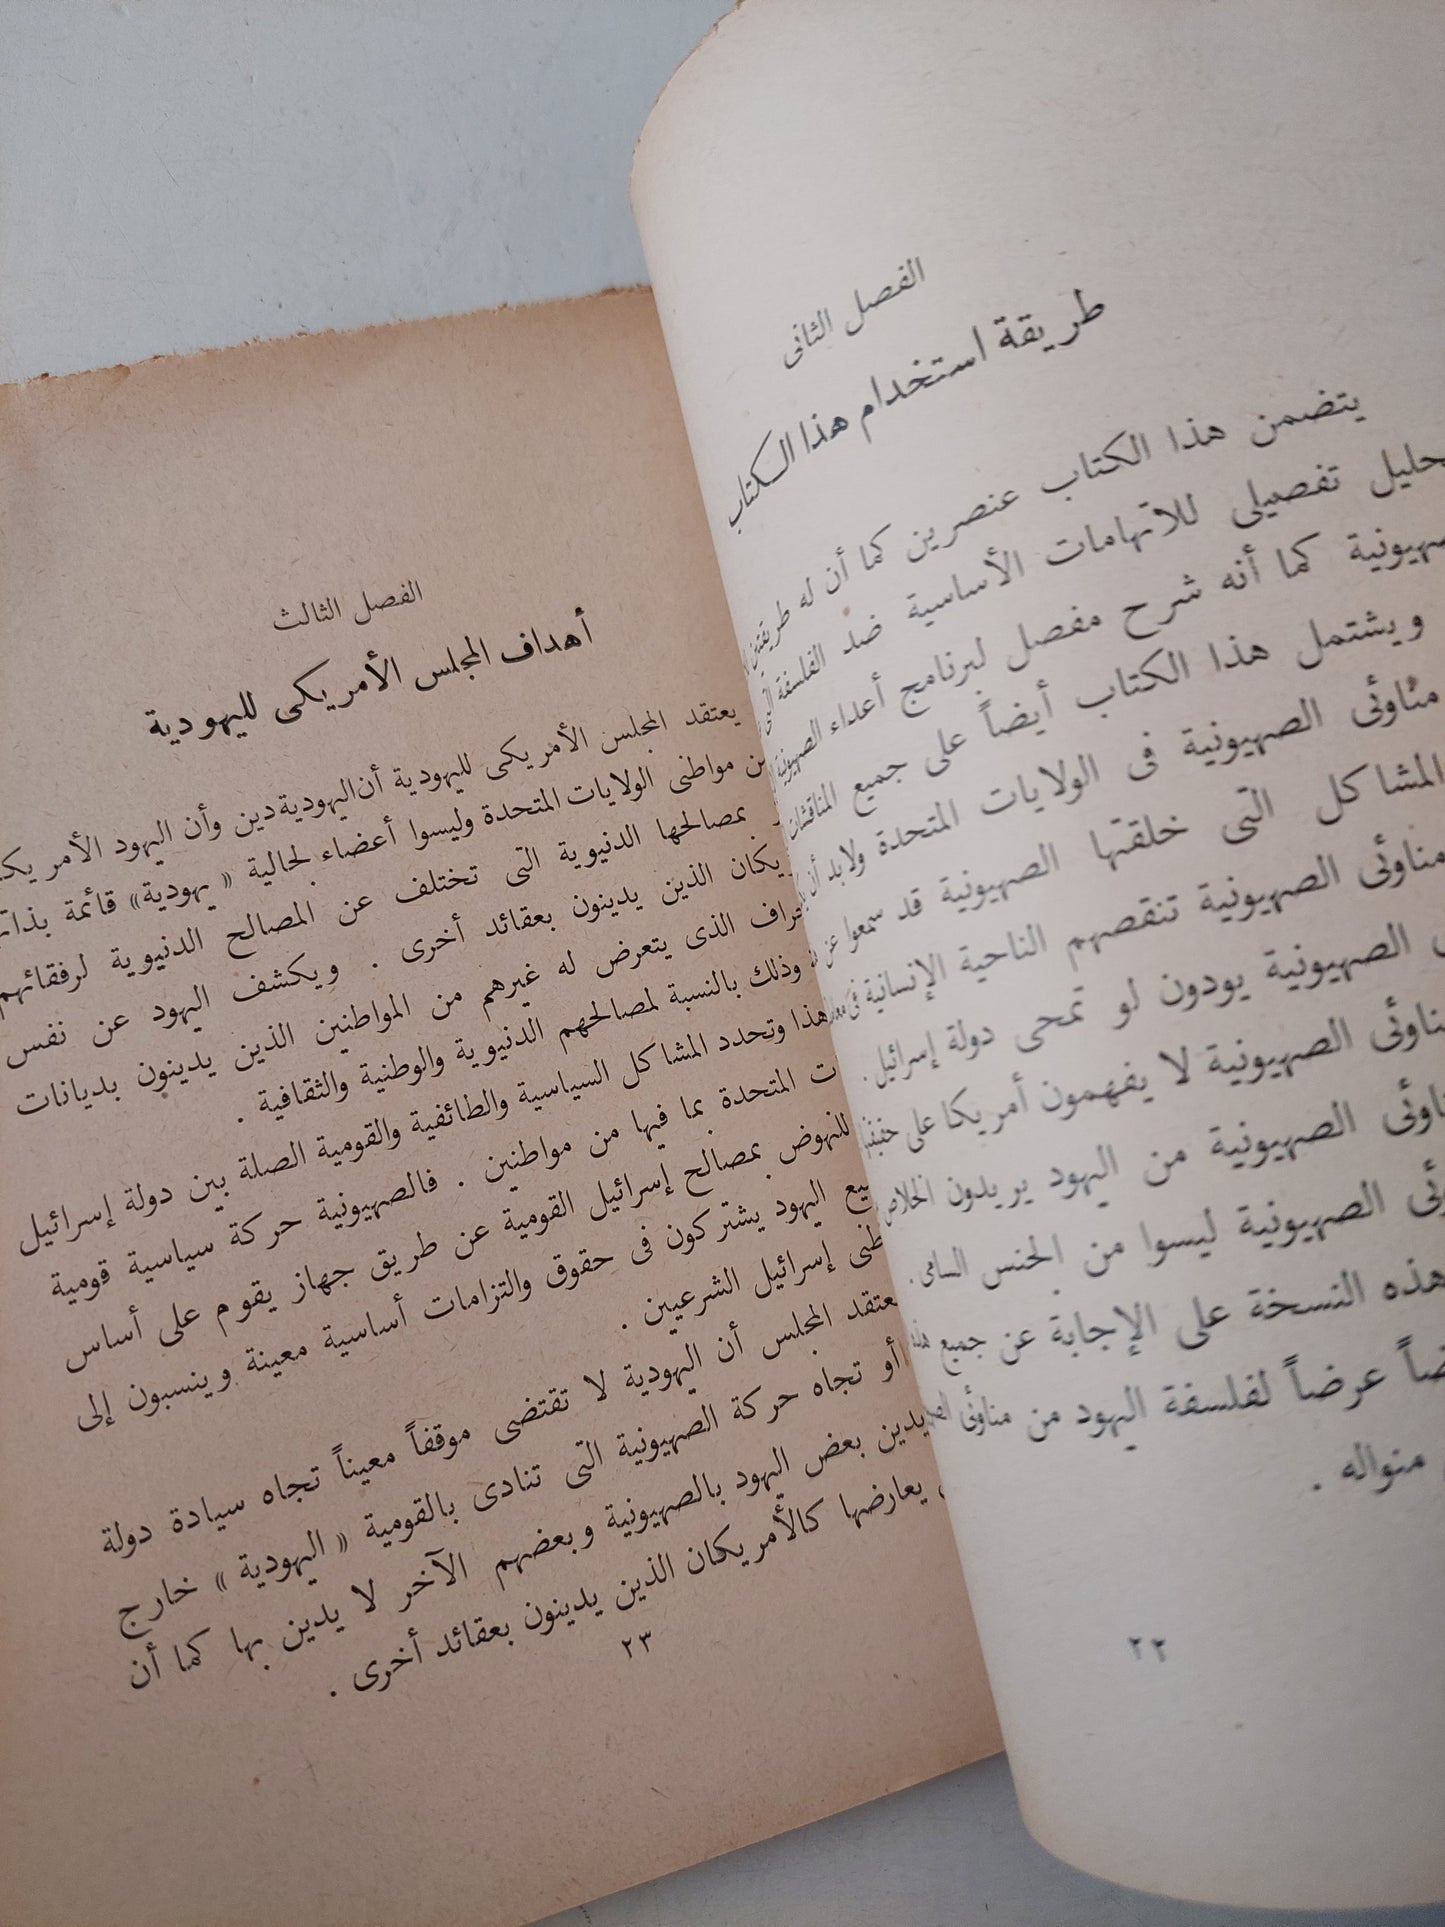 الفصل الثانى
طريقة استخدام هذا الكتاب
يتضمن هذا الكتاب عنصرين كما أن له
تفصيلى للاتهامات الأساسية ضد الفلسفة
كما أنه شرح مفصل لبرنامج أعداء الصهيونية
ويشتمل هذا الكتاب أيضاً على جميع المناقشات
مناوئى الصهيونية فى الولايات المتحدة ولابد أن
المشاكل التى خلقتها الصهيونية قد سمعوا عن
مناوئى الصهيونية تنقصهم الناحية الإنسانية فى
الصهيونية يودون لو تمحى دولة إسرائيل .
الصهيونية لا يفهمون أمريكا على
الصهيونية من اليهود يريدون الخلاص
الصهيونية ليسوا من الجنس السامى .
هذه النسخة على الإجابة عن جميع
عرضاً لفلسفة اليهود من مناوئى
منواله .
٢٢
الفصل الثالث
أهداف المجلس الأمريكى لليهودية
يعتقد المجلس الأمريكى لليهودية أن اليهودية دين وأن اليهود
مواطنى الولايات المتحدة وليسوا أعضاء لجالية « يهودية » قائمة
بمصالحها الدنيوية التى تختلف عن المصالح الدنيوية لرفقائهم
الذين يدينون بعقائد أخرى . ويكشف اليهود عن نفس
الذى يتعرض له غيرهم من المواطنين الذين يدينون بديانات
وذلك بالنسبة لمصالحهم الدنيوية والوطنية والثقافية .
هذا وتحدد المشاكل السياسية والطائفية والقومية الصلة بين دولة إسرائيل
المتحدة بما فيها من مواطنين . فالصهيونية حركة سياسية قومية
للنهوض بمصالح إسرائيل القومية عن طريق جهاز يقوم على أساس
اليهود يشتركون فى حقوق والتزامات أساسية معينة وينسبون إلى
إسرائيل الشرعيين .
المجلس أن اليهودية لا تقتضى موقفاً معيناً تجاه سيادة دولة
أو تجاه حركة الصهيونية التى تنادى بالقومية « اليهودية » خارج
بعض اليهود بالصهيونية وبعضهم الآخر لا يدين بها كما أن
يعارضها كالأمريكان الذين يدينون بعقائد أخرى .
٢٣